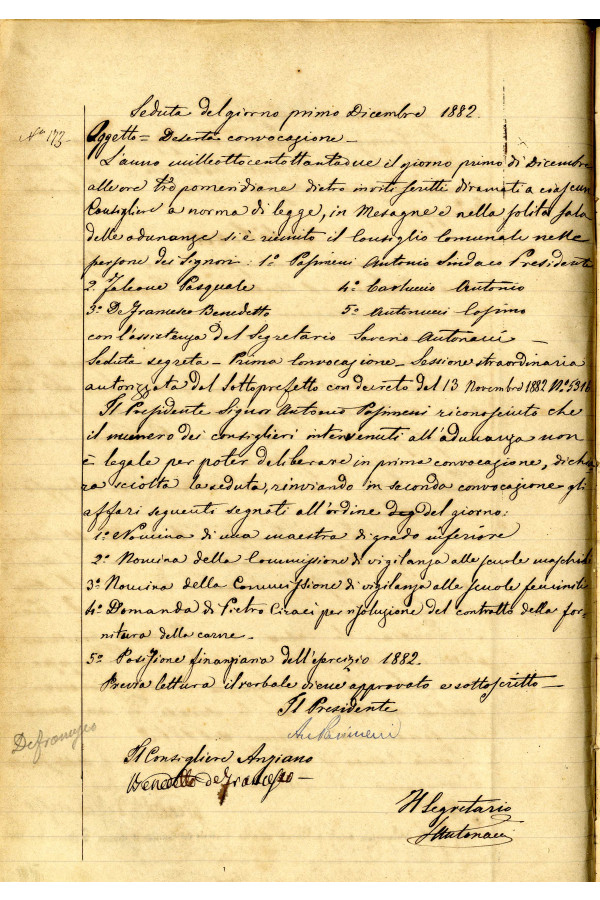 Seduta del giorno primo Dicembre 1882.
N.° 173
Oggetto = Deserta convocazione —
L'anno milleottocentottantadue il giorno primo di Dicembre
alle ore tre pomeridiane dietro inviti scritti diramati a ciascun
Consigliere a norma di legge, in Mesagne e nella solita sala
delle adunanze si è riunito il Consiglio Comunale nelle
persone dei Signori: 1° Pasimeni Antonio Sindaco Presidente
2. Falcone Pasquale 4° Carluccio Antonio
3° De Francesco Benedetto 5° Antonucci Cosimo
con l'assistenza del Segretario Saverio Antonacci —
Seduta segreta — Prima Convocazione — Sessione straordinaria
autorizzata dal Sottoprefetto con decreto del 13 Novembre 1882 N° 5316
Il Presidente Signor Antonio Pasimeni riconosciuto che
il numero dei consiglieri intervenuti all'adunanza non
è legale per poter deliberare in prima convocazione, dichia
ra sciolta la seduta, rinviando in seconda convocazione gli
affari seguenti segnati all'ordine del giorno:
1° Nomina di una maestra di grado inferiore
2° Nomina della Commissione di vigilanza alle scuole maschili
3° Nomina della Commissione di vigilanza alle scuole feminili
4° Domanda di Pietro Ciraci per risoluzione del contratto della for-
nitura della carne —
5° Posizione finanziaria dell'esercizio 1882.
Previa lettura il verbale viene approvato e sottoscritto —
Il Presidente
Ant Pasimeni
Defrancesco
Il Consigliere Anziano
Benedetto de Francesco —
Il Segretario
S Antonacci